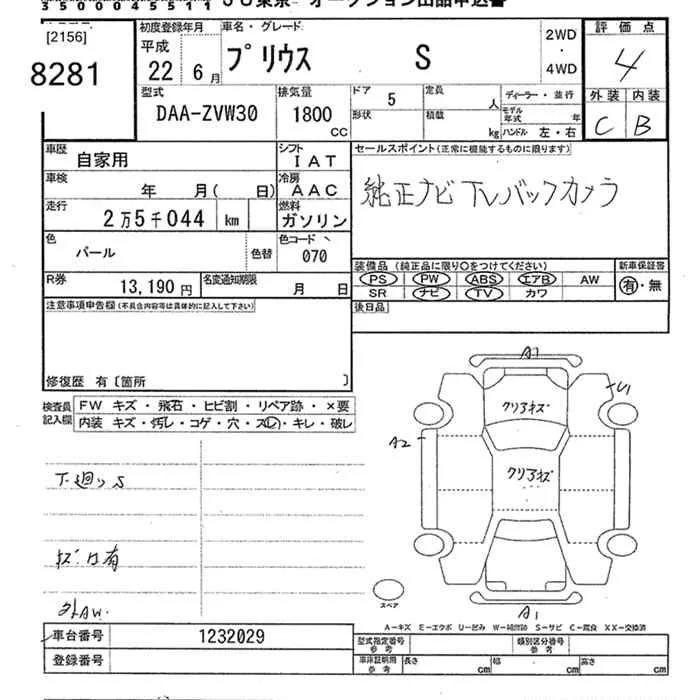 35000045511 JU東京 オークション出品申込書
[2156]
8281
初度登録年月
平成
22 年 6 月
車名・グレード
プリウス S
2WD
・
4WD
評価点
4
外装 内装
C B
型式
DAA-ZVW30
排気量
1800
CC
ドア 5
形状
定員 人
積載 kg
ディーラー・並行
モデル年式 年
ハンドル 左・右
車歴
自家用
シフト
IAT
車検
年 月( 日)
冷房
AAC
走行
2万5千044 km
燃料
ガソリン
色
パール
色替
色コード
070
R券
13,190円
名変通知期限
月 日
セールスポイント(正常に機能するものに限ります)
純正ナビ TV バックカメラ
装備品 (純正品に限り〇をつけてください)
PS PW ABS エアB AW
SR ナビ TV カワ
新車保証書
有・無
後日品
注意事項申告欄(不具合内容等は具体的に記入して下さい)
修復歴 有〔箇所 〕
検査員
記入欄
FW キズ・飛石・ヒビ割・リペア跡・×要
内装 キズ・汚レ・コゲ・穴・スレ・キレ・破レ
下廻りS
キズ凹有
外AW.
A1
U1
クリアキズ
A2
クリアキズ
A1
スペア
A-キズ E-エクボ U-凹み W-補修跡 S-サビ C-腐食 XX-交換済
車台番号 1232029
登録番号
型式指定番号
参考
類別区分番号
参考
車庫証明用
参考
長さ cm
幅 cm
高さ cm